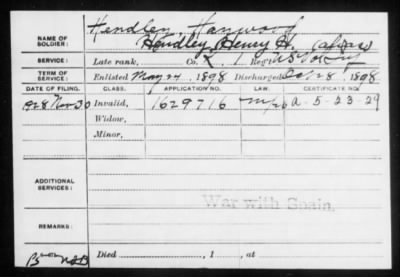 NAME OF SOLDIER: Hendley, Harwood
Hendley, Henry H. (alias)
SERVICE: Late rank, Co. K, 1 Reg't U.S. Vol.
TERM OF SERVICE: Enlisted May 24, 1898 Discharged Oct 28, 1898
DATE OF FILING. CLASS. APPLICATION NO. LAW. CERTIFICATE NO.
1928 Nov 30 Invalid, 1629716 a-5-23-29
Widow,
Minor,
ADDITIONAL SERVICES:
War with Spain.
REMARKS:
Died , 1 , at